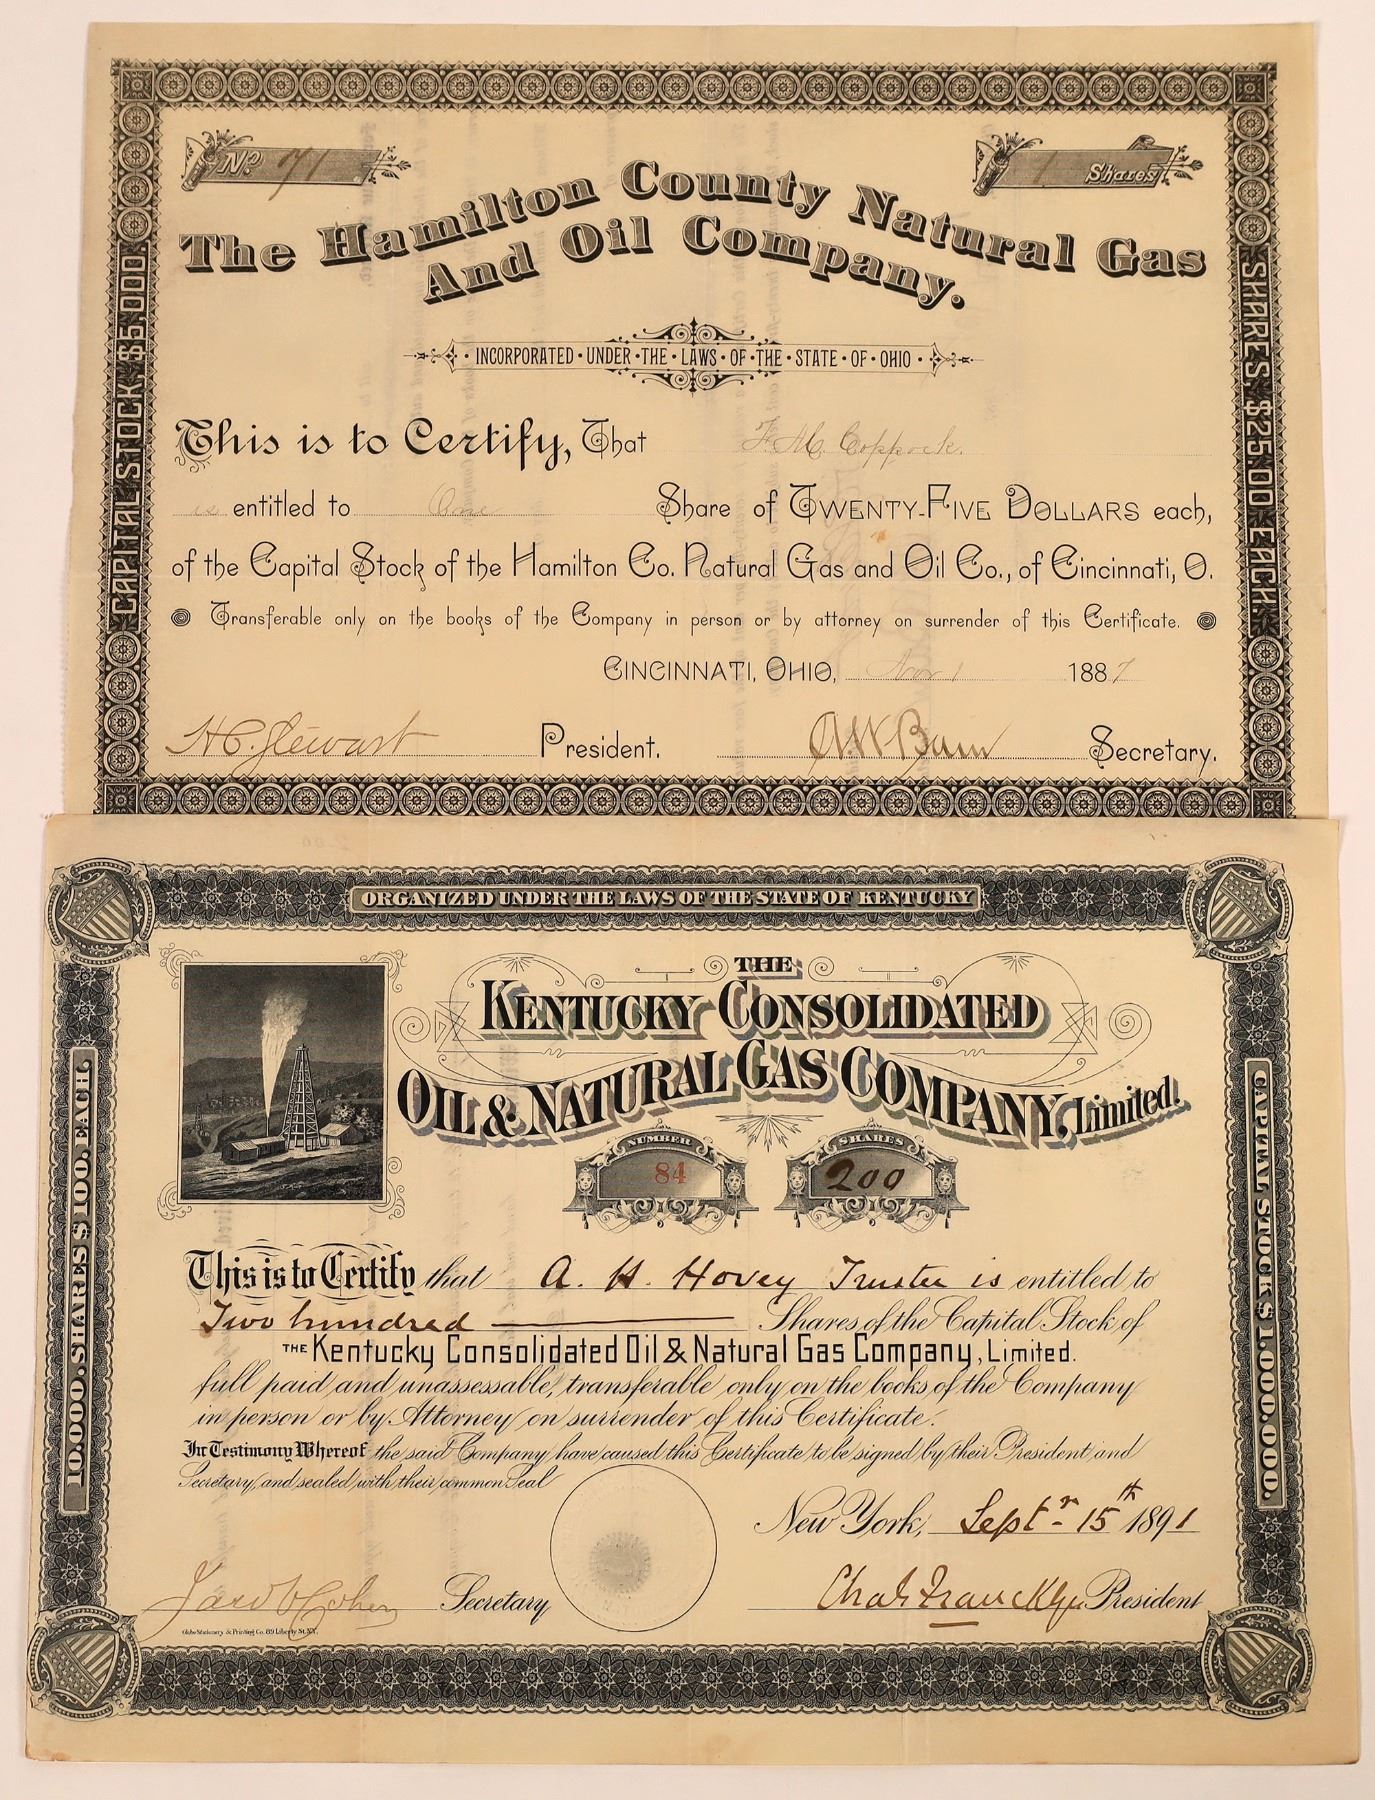 No. 71
1 Shares
The Hamilton County Natural Gas
And Oil Company.
CAPITAL STOCK $5.000.
SHARES, $25.00 EACH.
INCORPORATED · UNDER · THE · LAWS · OF · THE · STATE · OF · OHIO
This is to Certify, That F. M. Coppock.
is entitled to One Share of TWENTY-FIVE DOLLARS each,
of the Capital Stock of the Hamilton Co. Natural Gas and Oil Co., of Cincinnati, O.
Transferable only on the books of the Company in person or by attorney on surrender of this Certificate.
CINCINNATI, OHIO, Nov 1 1887
H C. Stewart President. Secretary.
ORGANIZED UNDER THE LAWS OF THE STATE OF KENTUCKY
10.000. SHARES $100. EACH.
CAPITAL STOCK $1.000.000.
THE
KENTUCKY CONSOLIDATED
OIL & NATURAL GAS COMPANY, Limited.
NUMBER
84
SHARES
200
This is to Certify that A. H. Hovey Trustee is entitled to
Two hundred Shares of the Capital Stock of
THE Kentucky Consolidated Oil & Natural Gas Company, Limited.
full paid and unassessable, transferable only on the books of the Company
in person or by Attorney on surrender of this Certificate.
In Testimony Whereof the said Company have caused this Certificate to be signed by their President and
Secretary, and sealed with their common Seal
New York, Septr 15th 1891
Secretary President
Globe Stationery & Printing Co. 89 Liberty St. N.Y.